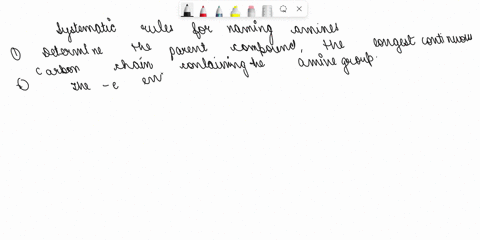 Systematic rules for naming amines
① Determine the parent compound, the longest continuous
carbon chain containing the amine group.
② The -e en